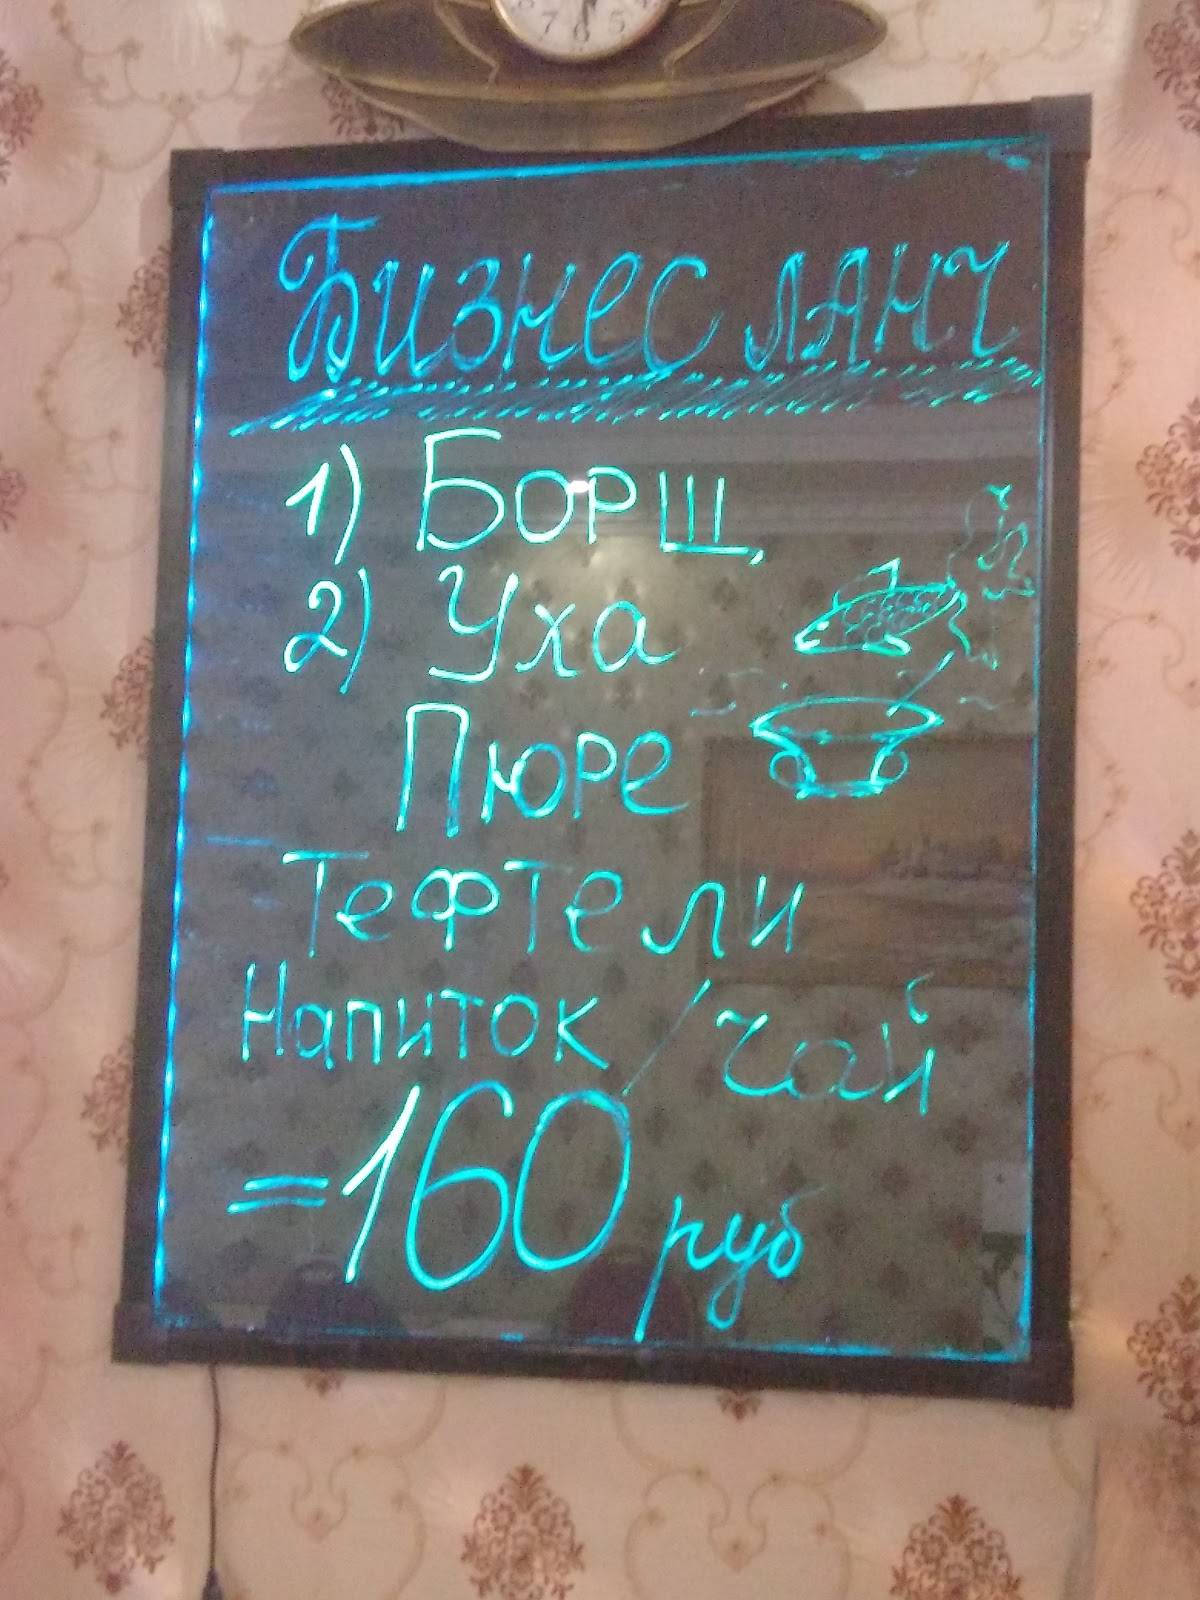 Бизнес ланч
1) Борщ
2) Уха
Пюре
Тефтели
Напиток / чай
=160 руб
7 6 5